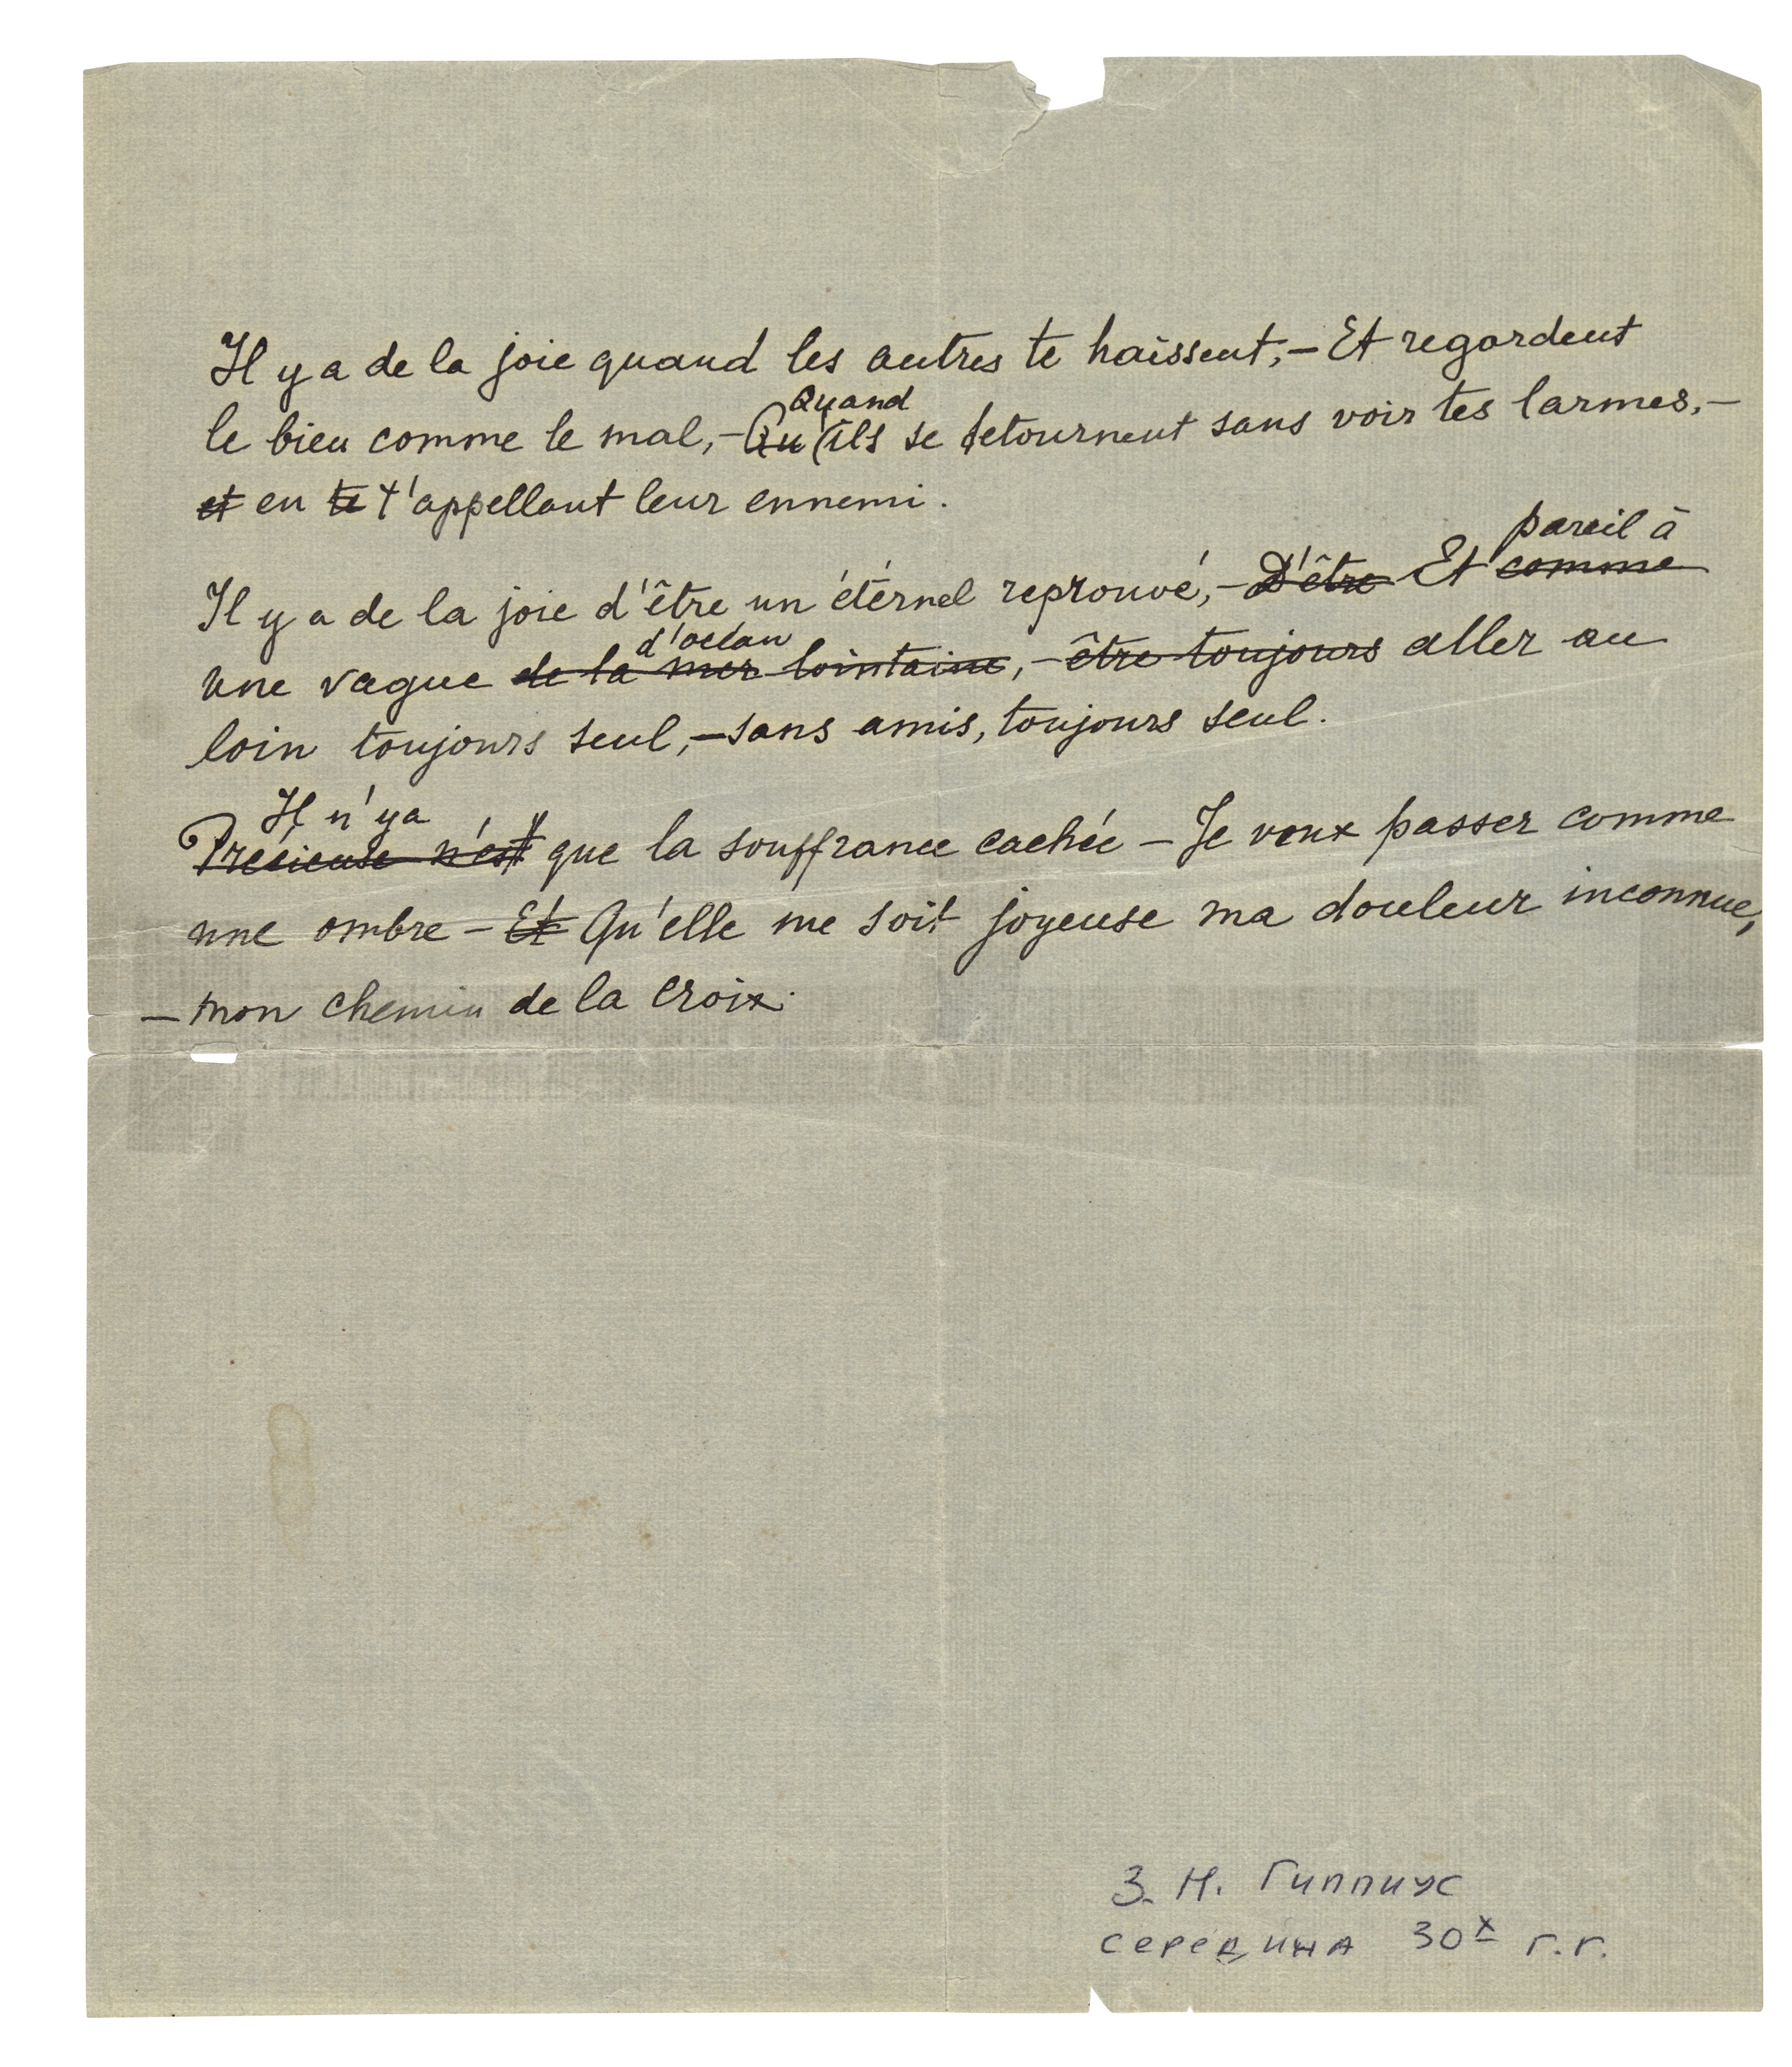 Il y a de la joie quand les autres te haïssent,– Et regardent
Quand
le bien comme le mal,– Qu'ils se detournent sans voir tes larmes,–
et en te t'appellant leur ennemi.
pareil à
Il y a de la joie d'être un étérnel reprouvé,– D'être Et comme
d'océan
une vague de la mer lointaine,– être toujours aller au
loin toujours seul,– sans amis, toujours seul.
Il n'y a
Précieuse n'est que la souffrance cachée – Je veux passer comme
une ombre – Et Qu'elle me soit joyeuse ma douleur inconnue,
– mon chemin de la croix.
З. Н. Гиппиус
середина 30х г.г.